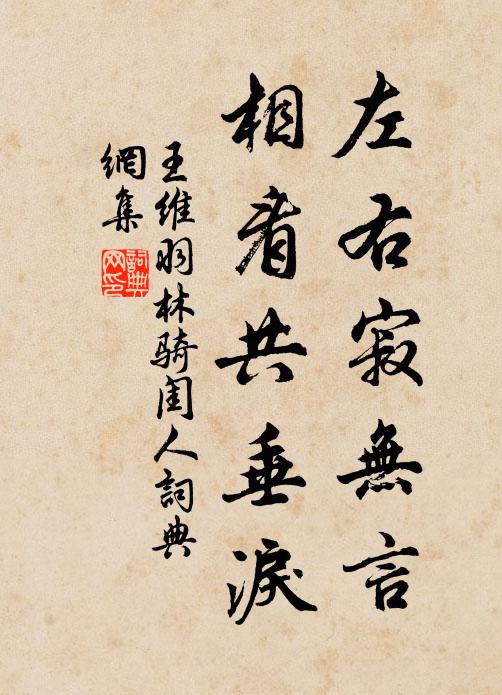 左右寂無言
相看共垂淚
王維羽林骑闺人詞典
網集
詞典
网印